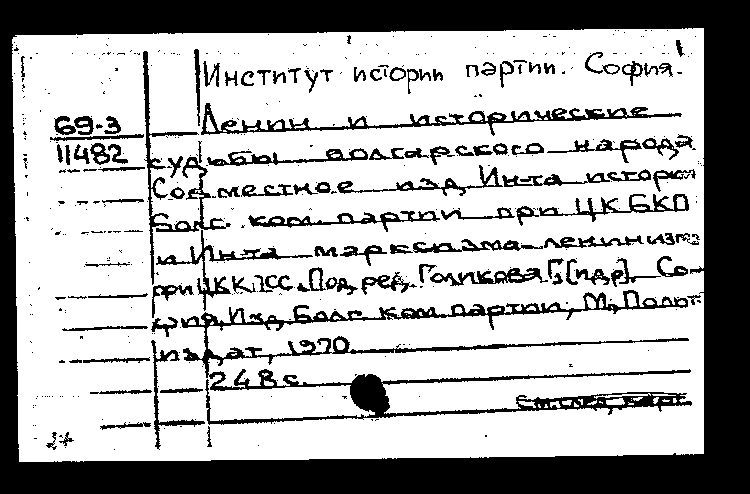 Институт истории партии. София.
69-3 Ленин и исторические
11482 судьбы болгарского народа
Совместное изд. Ин-та истории
Болг. ком. партии при ЦК БКП
и Ин-та марксизма-ленинизма
при ЦК КПСС. Под ред. Голикова Г. [и др]. Со-
фия, Изд. Болг. ком. партии; М., Полит-
издат, 1970.
248 с.
См. след. карт.
27